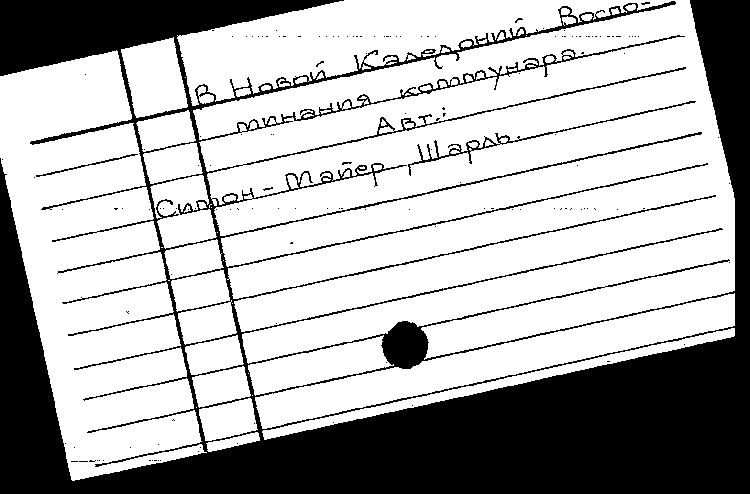 В Новой Каледоний. Воспо-
минания коммунара.
Авт.:
Симон-Майер, Шарль.